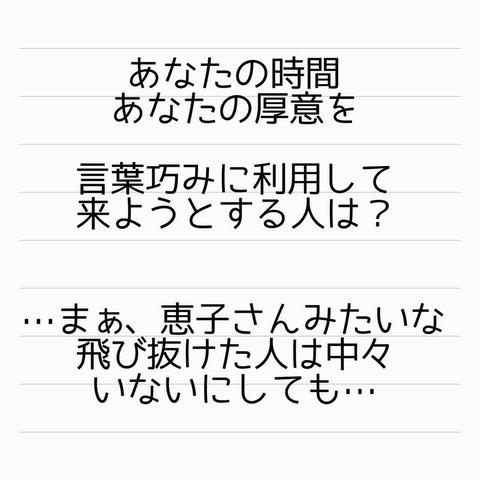 あなたの時間
あなたの厚意を
言葉巧みに利用して
来ようとする人は？
…まぁ、恵子さんみたいな
飛び抜けた人は中々
いないにしても…